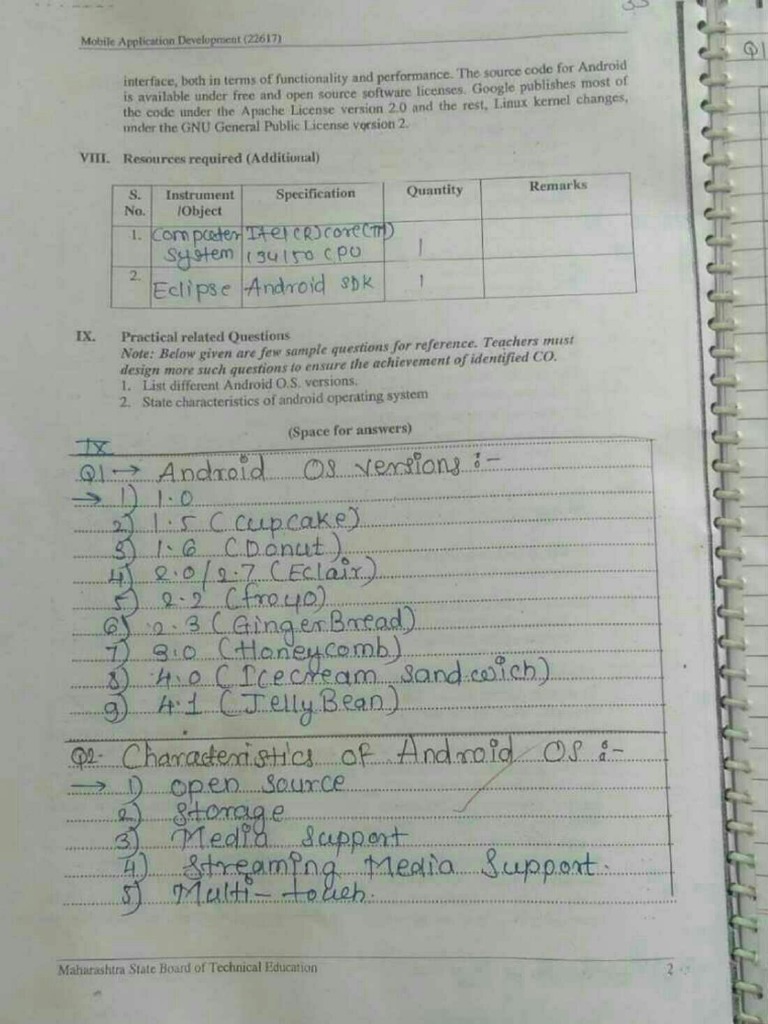 Mobile Application Development (22617)
interface, both in terms of functionality and performance. The source code for Android
is available under free and open source software licenses. Google publishes most of
the code under the Apache License version 2.0 and the rest, Linux kernel changes,
under the GNU General Public License version 2.
VIII. Resources required (Additional)
S. No. Instrument /Object Specification Quantity Remarks
1. Computer System Itel(R)core(TM) i34150 CPU 1
2. Eclipse Android SDK 1
IX. Practical related Questions
Note: Below given are few sample questions for reference. Teachers must
design more such questions to ensure the achievement of identified CO.
1. List different Android O.S. versions.
2. State characteristics of android operating system
(Space for answers)
IX
Q1→ Android OS versions :-
→ 1) 1.0
2) 1.5 (cupcake)
3) 1.6 (Donut)
4) 2.0/2.7 (Eclair)
5) 2.2 (froyo)
6) 2.3 (GingerBread)
7) 3.0 (Honeycomb)
8) 4.0 (Icecream sandwich)
9) 4.1 (JellyBean)
Q2- Characteristics of Android OS :-
→ 1) open source
2) Storage
3) Media Support
4) Streaming Media Support.
5) Multi-touch.
Maharashtra State Board of Technical Education 2
Q1